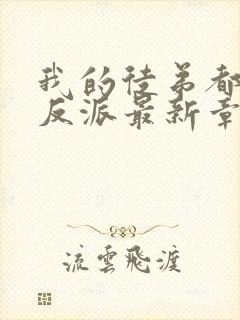 我的徒弟都
反派最新章
流雲飛渡